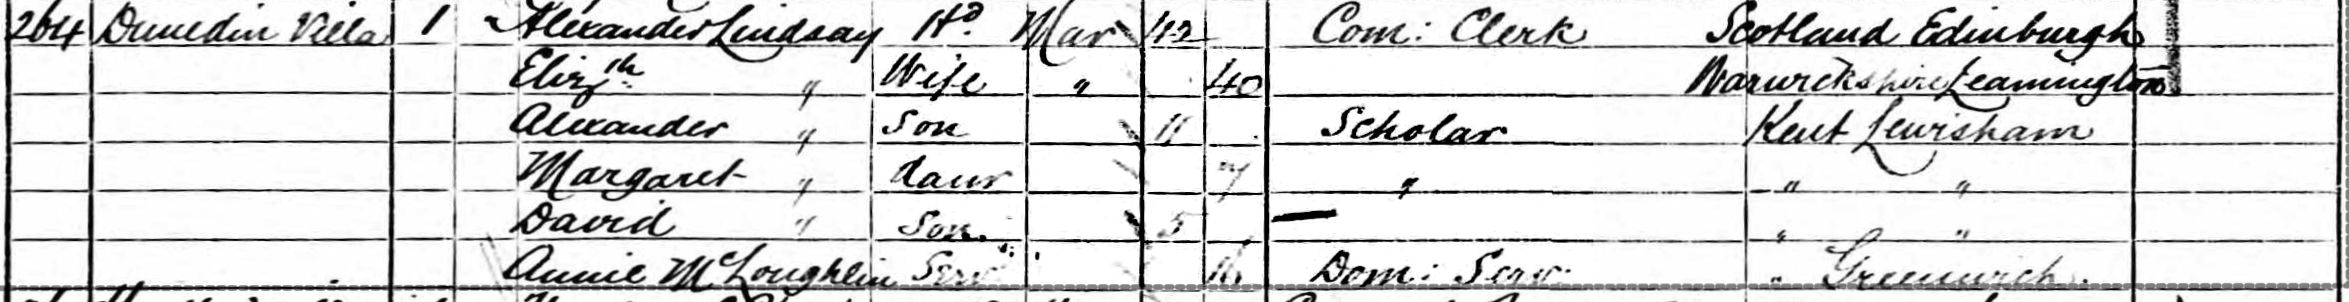 264 Dunedin Villa 1 Alexander Lindsay Hd. Mar 42 Com: Clerk Scotland Edinburgh
Elizth. " Wife " 40 Warwickshire Leamington
Alexander " Son 11 Scholar Kent Lewisham
Margaret " daur 7 " " "
David " Son. 5 — " "
Annie McLoughlin Serv 16 Dom: Serv: " Greenwich.